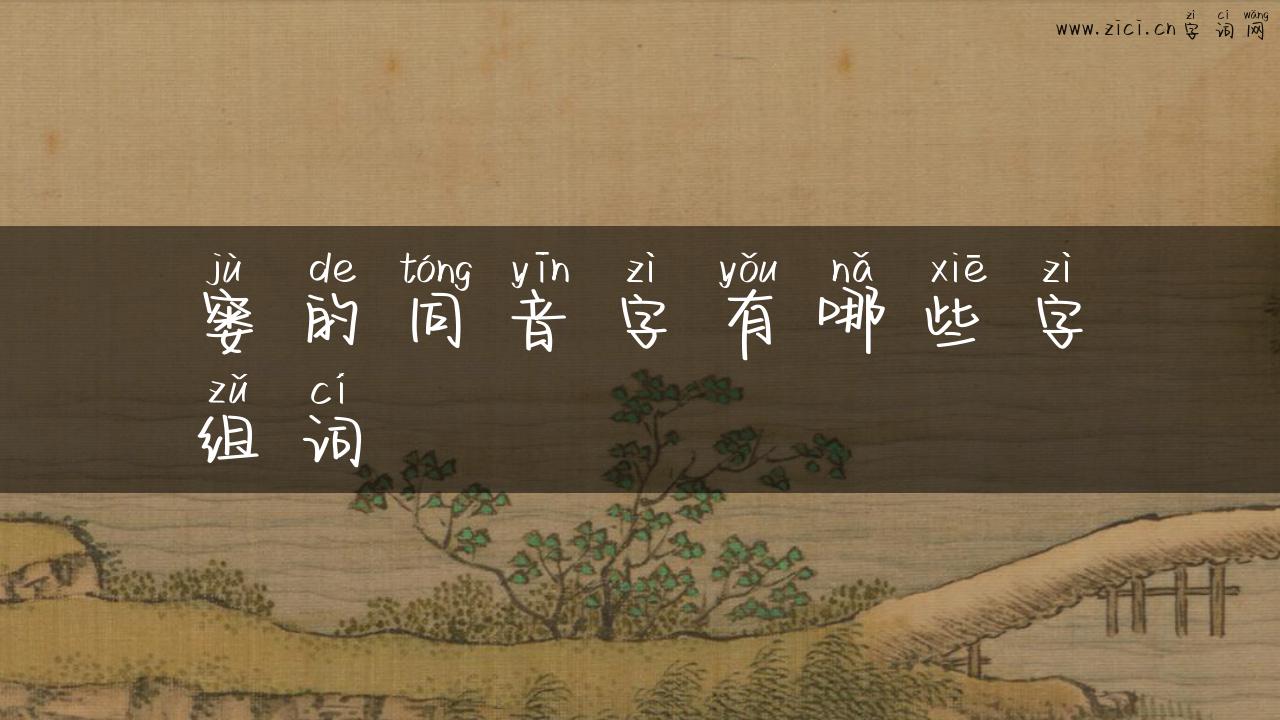 zì cí wǎng
www.zici.cn 字 词 网
jù de tóng yīn zì yǒu nǎ xiē zì
窭 的 同 音 字 有 哪 些 字
zǔ cí
组 词